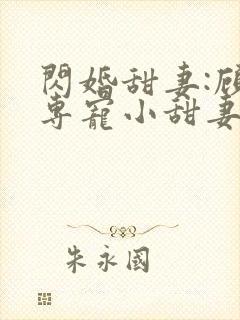 閃婚甜妻:
專寵小甜妻
朱永國